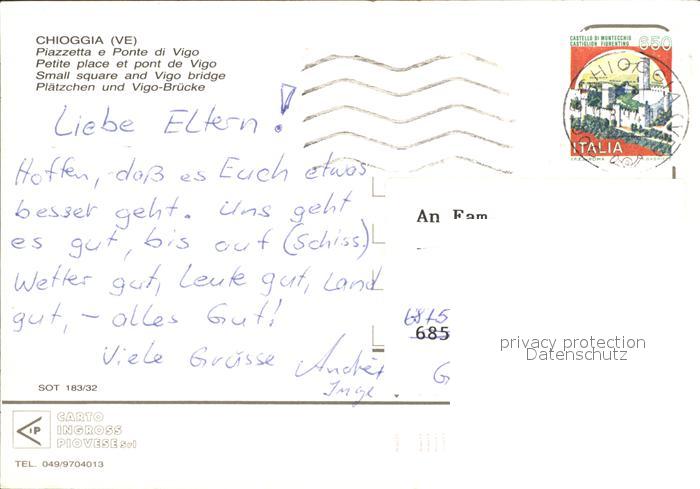 CHIOGGIA (VE)
Piazzetta e Ponte di Vigo
Petite place et pont de Vigo
Small square and Vigo bridge
Plätzchen und Vigo-Brücke
CASTELLO DI MONTECCHIO
CASTIGLION FIORENTINO
650
ITALIA
CHIOGGIA
Liebe Eltern!
Hoffen, daß es Euch etwas
besser geht. Uns geht
es gut, bis auf (Schiss.)
Wetter gut, Leute gut, Land
gut, - alles Gut!
Viele Grüsse
André
Inge
An Fam
6815
685
G
privacy protection
Datenschutz
SOT 183/32
CARTO
INGROSS
PIOVESE Srl
TEL. 049/9704013